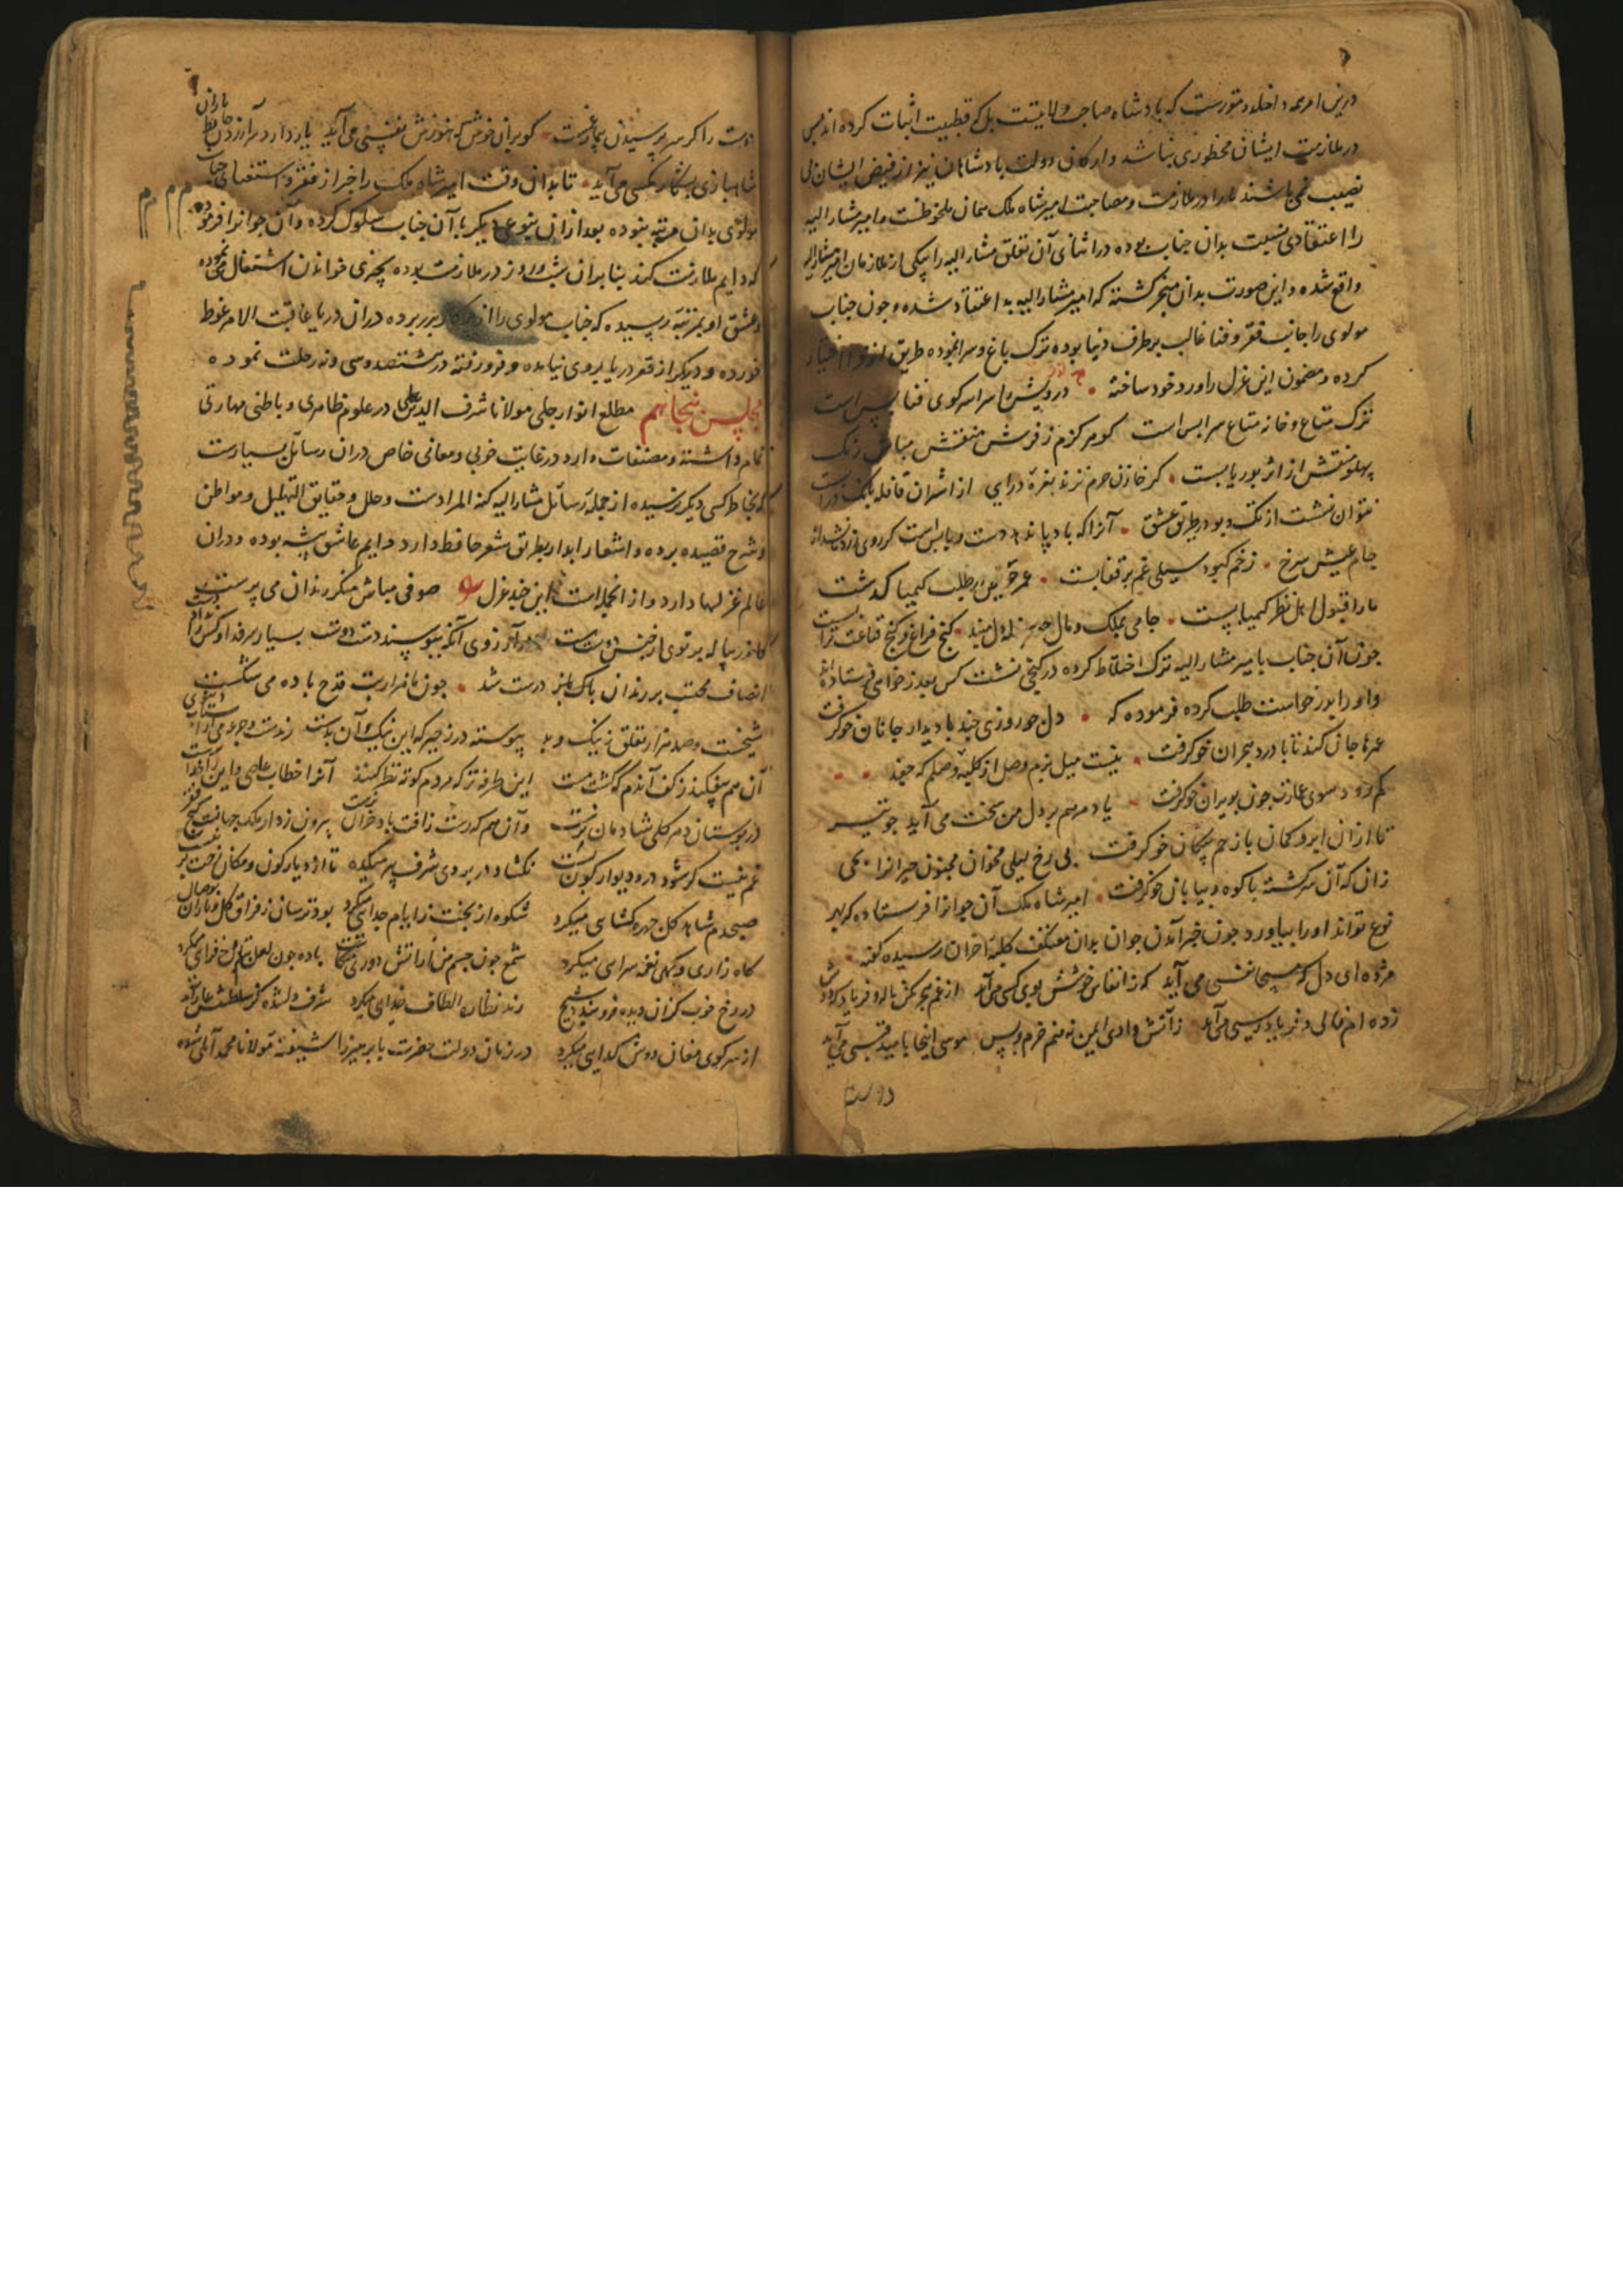 درین امر مداخله و متورست که پادشاه صاحب ولایتست بلکه قطبیت اثبات کرده اند پس
در ملازمت ایشان محظوری نباشد و ارکان دولت پادشاهان نیز از فیض ایشان بی
نصیب نمی باشند اما در ملازمت و مصاحبت امیر شاه ملک همان ملحوظست و امیر مشار الیه
را اعتقادی نسبت بدان جناب بوده در اثنای آن تعلق مشار الیه را بیکی از ملازمان امیر مشار الیه
واقع شده و این صورت بدان منجر کشته که امیر مشار الیه بد اعتقاد شده و چون جناب
مولوی را جانب فقر و فنا غالب بر طرف دنیا بوده ترک باغ و سرا نموده طریق انزوا اختیار
کرده و مضمون این غزل را ورد خود ساخته درویش را سراسر کوی فنا بس است
ترک متاع و خانه متاع سرا بس است کو مرکزم ز فرش منقش مباش رنک
پهلو منقش از اثر بوریا بست کر خازن حرم نزند بغره درای از اشتران قافله بانک درا بست
نتوان نشست از تک و پو در طریق عشق آنرا که باد پا نبود دست و پا بس است کر روی زرد
جام عیش سرخ زخم کبود سیلی غم بر قفا بست عمر در طلب کیمیا کذشت
ما را قبول اهل نظر کیمیا بست جامی بملک و مال چو هر سفله دل مبند کنج فراغ و کنج قناعت ترا بست
چون آن جناب با میر مشار الیه ترک اختلاط کرده در کنجی نشست کس بعذر خواهی فرستاده اند
و او را بدرخواست طلب کرده فرموده که دل چو روزی چند با دیدار جانان خو کرفت
عمرها جان کند تا با درد هجران خو کرفت نیست میل بزم وصل از کلبه وصلم که جغد
کم رود سوی عمارت چون بویران خو کرفت یاد مرهم بر دل من سخت می آید چو تیر
تا از ان ابرو کمان با زخم پیکان خو کرفت بی رخ لیلی مخوان مجنون حیرانرا بحی
زان که آن سرکشته با کوه و بیابان خو کرفت امیر شاه ملک آن جوانرا فرستاده که بهر
نوع تواند او را بیاورد چون خبر آمدن جوان بدان معتکف کلبه احزان رسیده کفته
مژده ای دل که مسیحا نفسی می آید که ز انفاس خوشش بوی کسی می آید از غم هجر مکن ناله و فریاد که دوش
زده ام فالی و فریاد رسی می آید ز آتش وادی ایمن نه منم خرم و بس موسی اینجا بامید قبسی می آید
دوست
دوست را کر سر پرسیدن بیمار غمست کو بران خوش که هنوزش نفسی می آید یار دارد سر آزردن حافظ یاران
شاهبازی بشکار مکسی می آید تا بدان وقت امیر شاه ملک را خبر از فقر و استغنای جناب
مولوی بدان مرتبه نبوده بعد از ان بنوع دیکر با آن جناب سلوک کرده و آن جوانرا فرموده
که دایم ملازمت کند بنا بر ان شب و روز در ملازمت بوده بچیزی خواندن اشتغال می نموده
و عشق او بمرتبه رسیده که جناب مولوی را از برده در ان دریا عاقبت الامر غوطه
خورده و دیکر از قعر دریا بروی نیامده و فرو رفته در ششصد و سی و نه رحلت نموده
مجلس پنجاهم مطلع انوار جلی مولانا شرف الدین علی در علوم ظاهری و باطنی مهارتی
تمام داشته و مصنفات دارد در غایت خوبی و معانی خاص در ان رسائل بسیارست
که بخاطر کسی دیکر نرسیده از جمله رسائل مشار الیه کنه المرادست و حلل و حقایق التهلیل و مواطن
و شرح قصیده برده و اشعار ابدار بطریق شعر حافظ دارد دایم عاشق پیشه بوده و در ان
عالم غزلها دارد و از انجمله است این چند غزل صوفی مباش منکر رندان می پرست
کاندر پیاله پرتوی از حسن دوست هست در آرزوی آنکه ببوسند دست دوست بسیار سر فداء
انصاف محتسب بر رندان پاکباز درست شد چون نا فرارست قدح باده می شکست
شیخست و صد هزار تعلق ز نیک و بد پیوسته در زحیر که این نیک و آن بدست رندست و جرعه
آن هم بیفکند ز کف آندم که کشت مست این طرفه تر که مردم کوته نظر کنند آنرا خطاب عاصی و این را
در بوستان دهر کلی شادمان نرست و آن هم که رست زافت باد خزان نرست بیرون ز دار ملک جهانست کنج
غم نیست کر شود در و دیوار کون پست نکشاد در بروی شرف پیر میکده تا از دیار کون و مکان رخت بر نبست
صبحدم شاهد کل چهره کشایی میکرد شکوه از بخت ز ایام جدایی میکرد بود ترسان ز فراق کل و باران وصال
کاه زاری و کهی نغمه سرایی میکرد شمع چون جسم من از آتش دوری میکاخت باده چون لعل بتان روح فزایی میکرد
در رخ خوب کزان دیده فرو بندد شیخ رند نظاره الطاف خدایی میکرد شرف دلشده کز سلطنتش عار آمد
از سر کوی مغان دوش کدایی میکرد در زمان دولت حضرت بابر میرزا شیفته مولانا محمد آملی شده